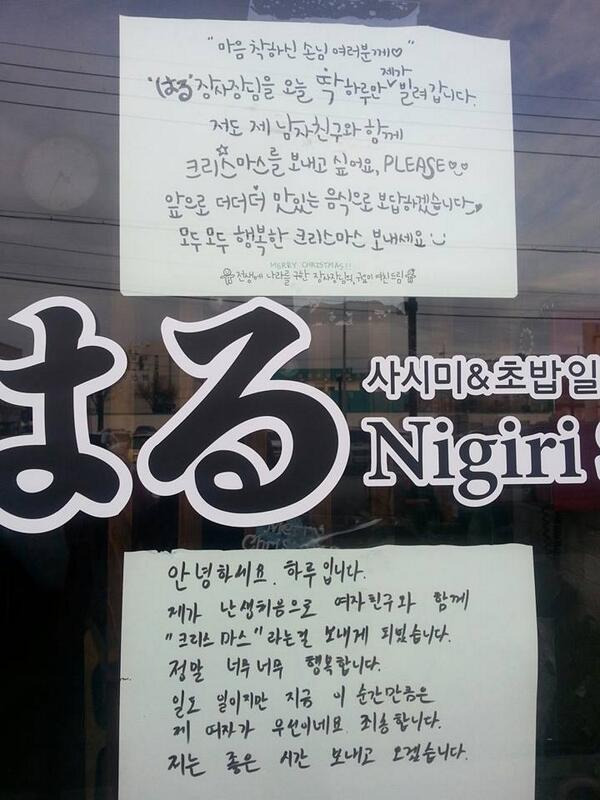 "마음 착하신 손님 여러분께♡"
'はる' 장사장님을 오늘 딱 하루만 제가 빌려갑니다.
저도 제 남자친구와 함께
크리스마스를 보내고 싶어요, PLEASE
앞으로 더더더 맛있는 음식으로 보답하겠습니다
모두모두 행복한 크리스마스 보내세요
MERRY CHRISTMAS!!
전생에 나라를 구한 장사장님의, 귀요미 여친드림
はる
사시미&초밥 일
Nigiri S
Merry
Chris
안녕하세요. 하루입니다.
제가 난생처음으로 여자친구와 함께
"크리스마스"라는걸 보내게 되었습니다.
정말 너무너무 행복합니다.
일도 일이지만 지금 이 순간만큼은
제 여자가 우선이네요. 죄송합니다.
저는 좋은 시간 보내고 오겠습니다.